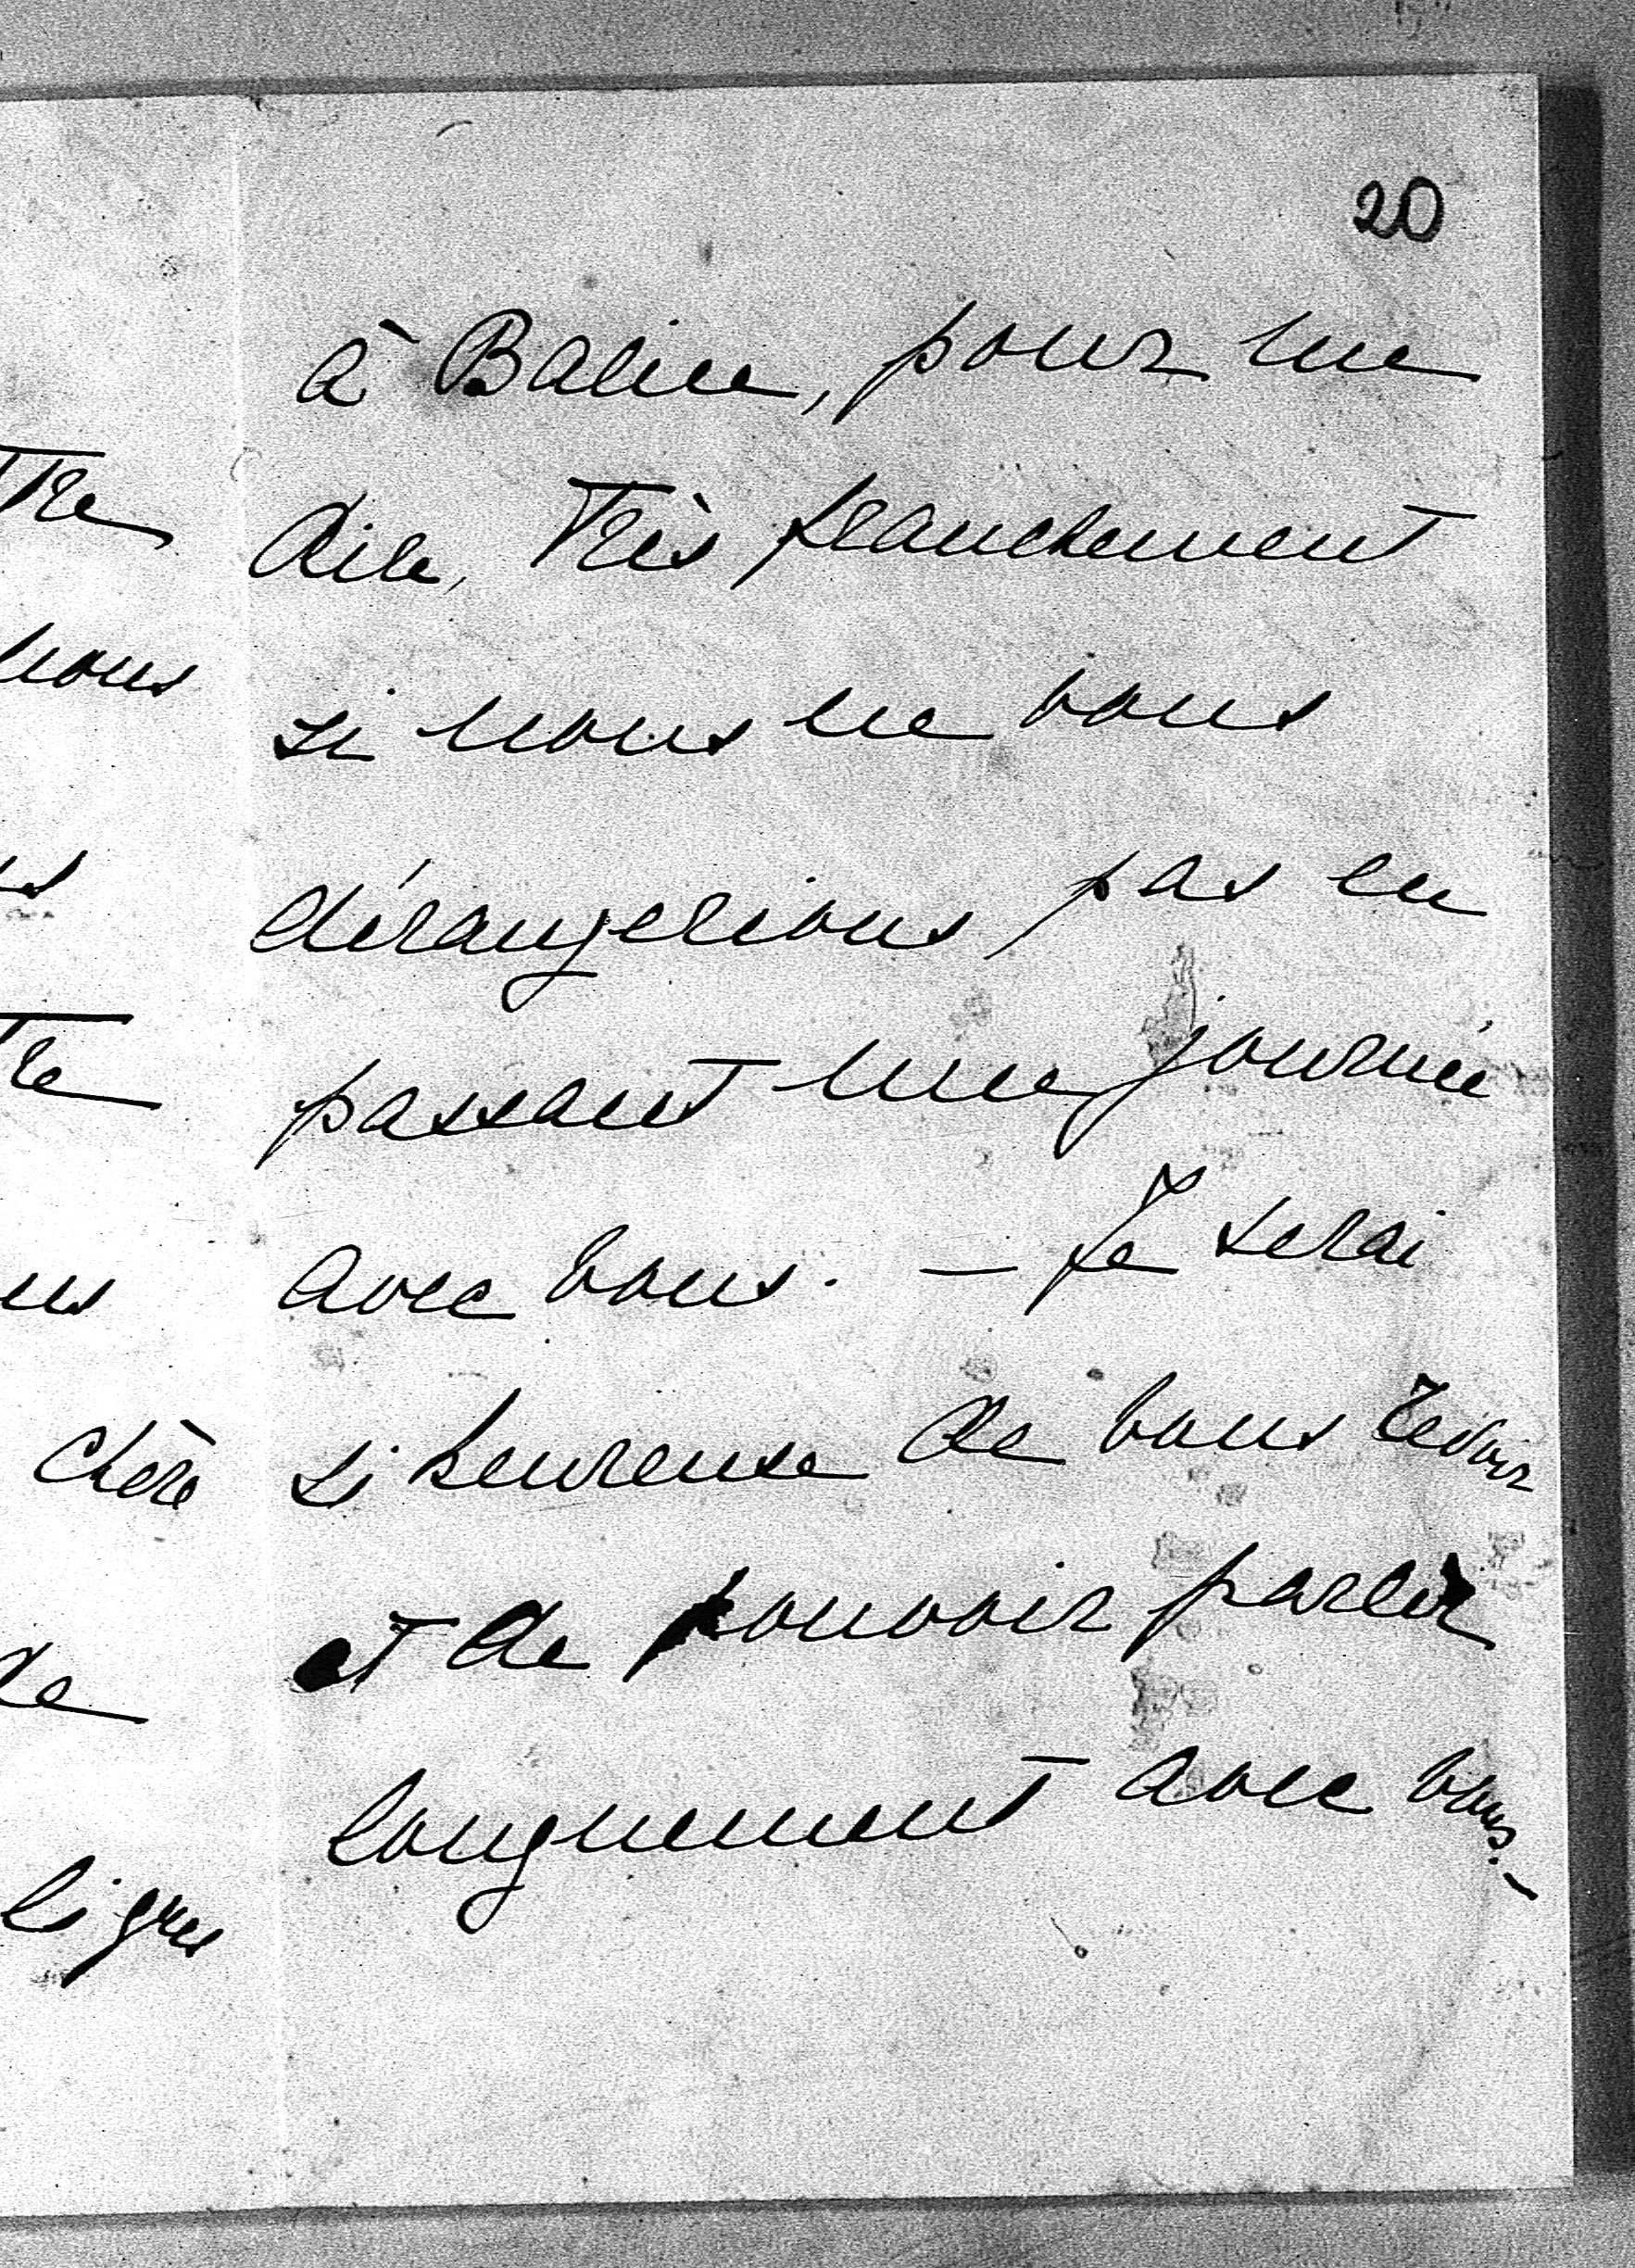 tre
nous
us
tre
us
chère
de
lignes
20
à Balice, pour me
dire, très franchement
si nous ne vous
dérangerions pas en
passant une journée
avec vous. — Je serai
si heureuse de vous revoir
et de pouvoir parler
longuement avec vous. —